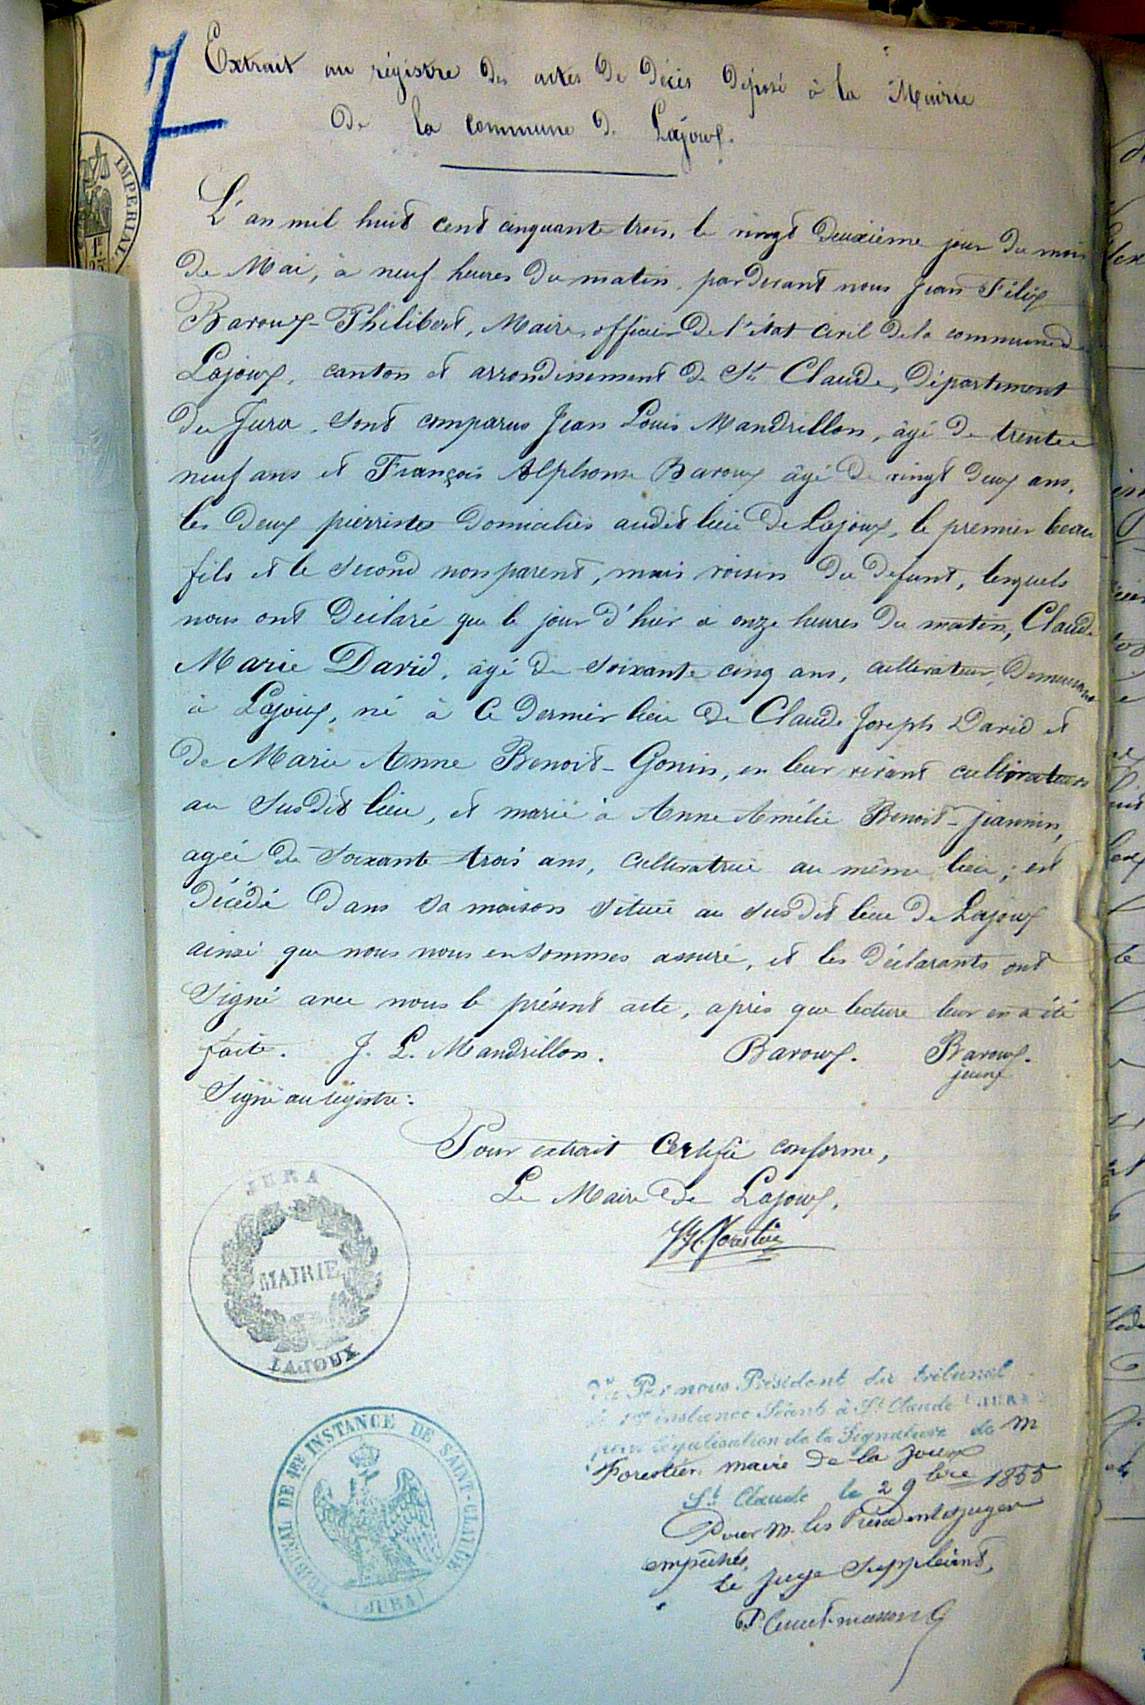 7
Extrait au régistre des actes de décès déposé à la Mairie
de la commune de Lajoux.
L'an mil huit cent cinquante trois, le vingt deuxième jour du mois
de Mai, à neuf heures du matin, pardevant nous Jean Félix
Baroux-Philibert, Maire, officier de l'état civil de la commune de
Lajoux, canton et arrondissement de St Claude, Département
du Jura, sont comparus Jean Louis Mandrillon, âgé de trente
neuf ans et François Alphonse Baroux âgé de vingt deux ans,
les deux pierristes domiciliés audit lieu de Lajoux, le premier beau
fils et le second non parent, mais voisin du defunt, lesquels
nous ont déclaré que le jour d'hier à onze heures du matin, Claude
Marie David, âgé de soixante cinq ans, cultivateur, demeurant
à Lajoux, né à ce dernier lieu de Claude Joseph David et
de Marie Anne Benoit-Gonin, en leur vivant cultivateurs
au susdit lieu, et marié à Anne Amélie Benoit-Jeannin,
agée de soixante trois ans, cultivatrice au même lieu; est
décédé dans sa maison située au susdit lieu de Lajoux
ainsi que nous nous en sommes assuré, et les déclarants ont
signé avec nous le présent acte, après que lecture leur en a été
faite. J. L. Mandrillon. Baroux. Baroux.
jeune
Signé au régistre:
Pour extrait certifié conforme,
Le Maire de Lajoux,
Forestier
JURA
MAIRIE
LAJOUX
Vu Par nous Président du tribunal
de 1ère instance Séant à St Claude (JURA)
pour légalisation de la Signature de M
Forestier maire de la joux
St Claude le 2 9bre 1855
Pour M. les Président et juges
empêchés,
le juge Suppléant,
TRIBUNAL DE 1ERE INSTANCE DE SAINT-CLAUDE
(JURA)
IMPERIAL